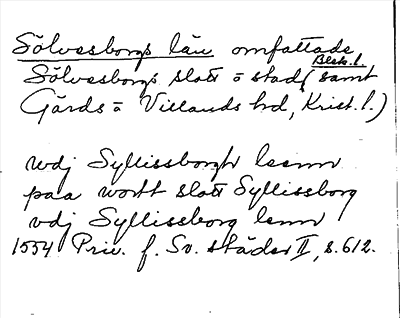 Sölvesborgs län omfattade
Sölvesborgs slott o stad (Blek. l. samt
Gärds o Villands hd, Krist. l.)
udj Syllissborgh leenn
paa wortt slott Syllissborg
vdj Syllissborg lenn
1554 Priv. f. Sv. städer II, s. 612.